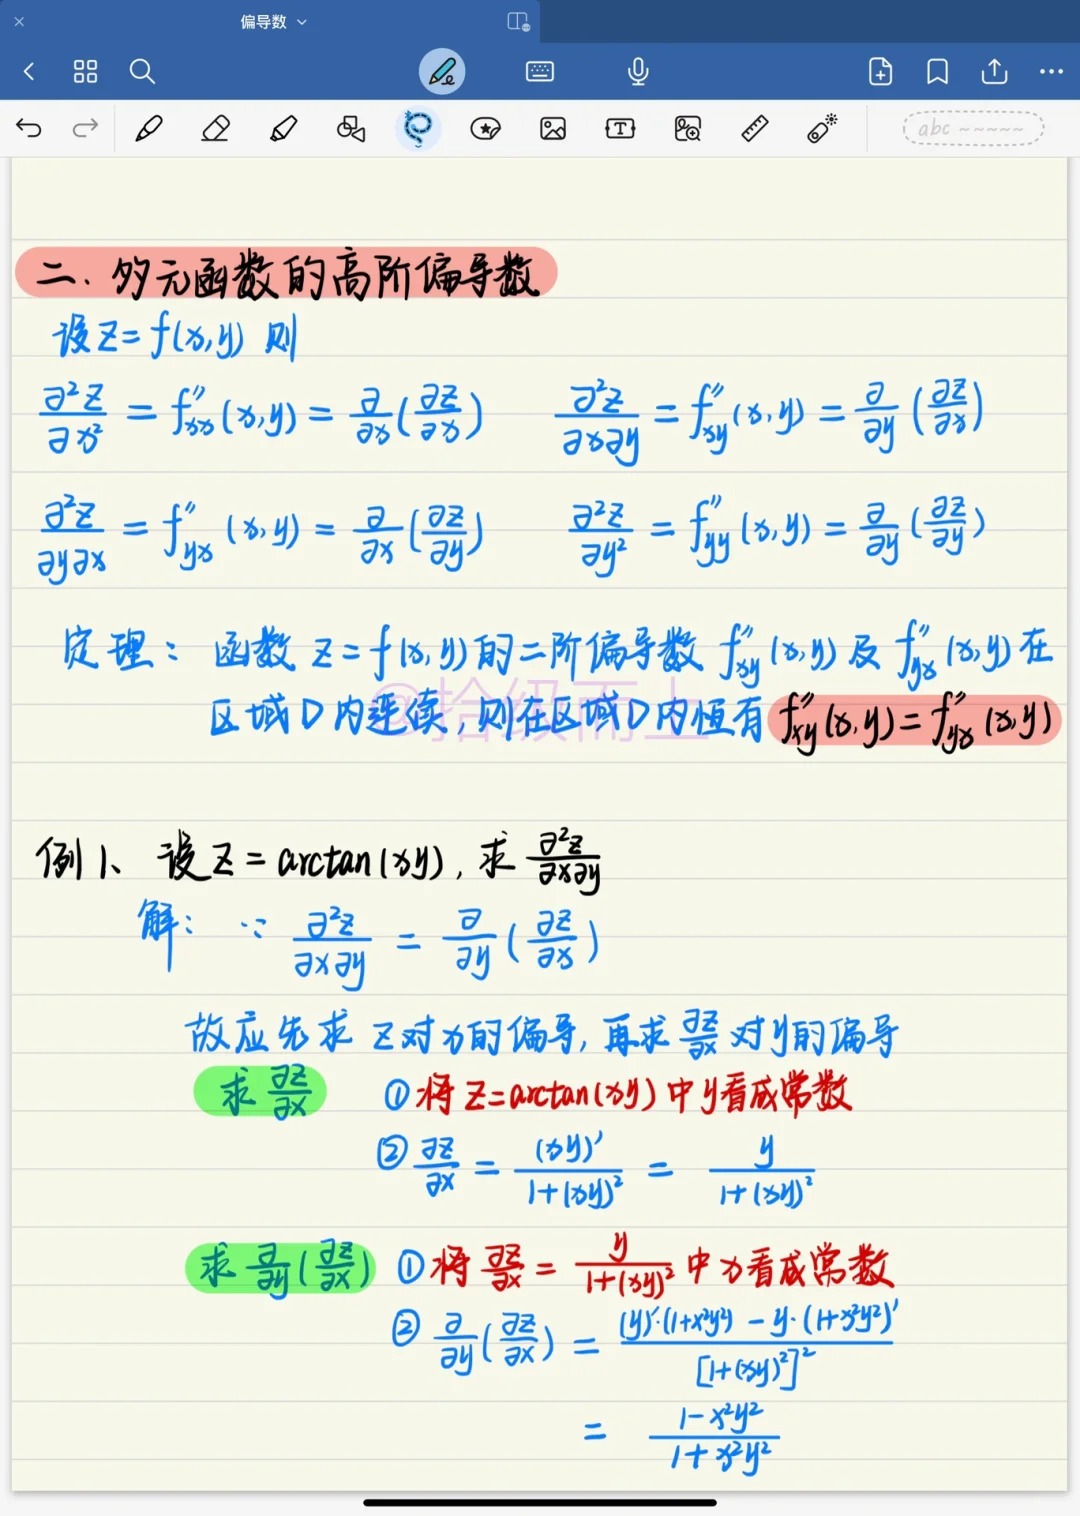 偏导数
abc
二. 多元函数的高阶偏导数
设z=f(x,y) 则
∂²z/∂x² = f″xx(x,y) = ∂/∂x(∂z/∂x) ∂²z/∂x∂y = f″xy(x,y) = ∂/∂y(∂z/∂x)
∂²z/∂y∂x = f″yx(x,y) = ∂/∂x(∂z/∂y) ∂²z/∂y² = f″yy(x,y) = ∂/∂y(∂z/∂y)
定理: 函数 z=f(x,y)的二阶偏导数 f″xy(x,y)及 f″yx(x,y)在
区域D内连续,则在区域D内恒有 f″xy(x,y)=f″yx(x,y)
@拾级而上
例1、设z=arctan(xy), 求 ∂²z/∂x∂y
解: ∵ ∂²z/∂x∂y = ∂/∂y(∂z/∂x)
故应先求 z对x的偏导, 再求 ∂z/∂x 对y的偏导
求 ∂z/∂x ①将 z=arctan(xy) 中y看成常数
② ∂z/∂x = (xy)′/1+(xy)² = y/1+(xy)²
求 ∂/∂y(∂z/∂x) ①将 ∂z/∂x = y/1+(xy)² 中x看成常数
② ∂/∂y(∂z/∂x) = (y)′·(1+x²y²) - y·(1+x²y²)′/[1+(xy)²]²
= 1-x²y²/1+x²y²